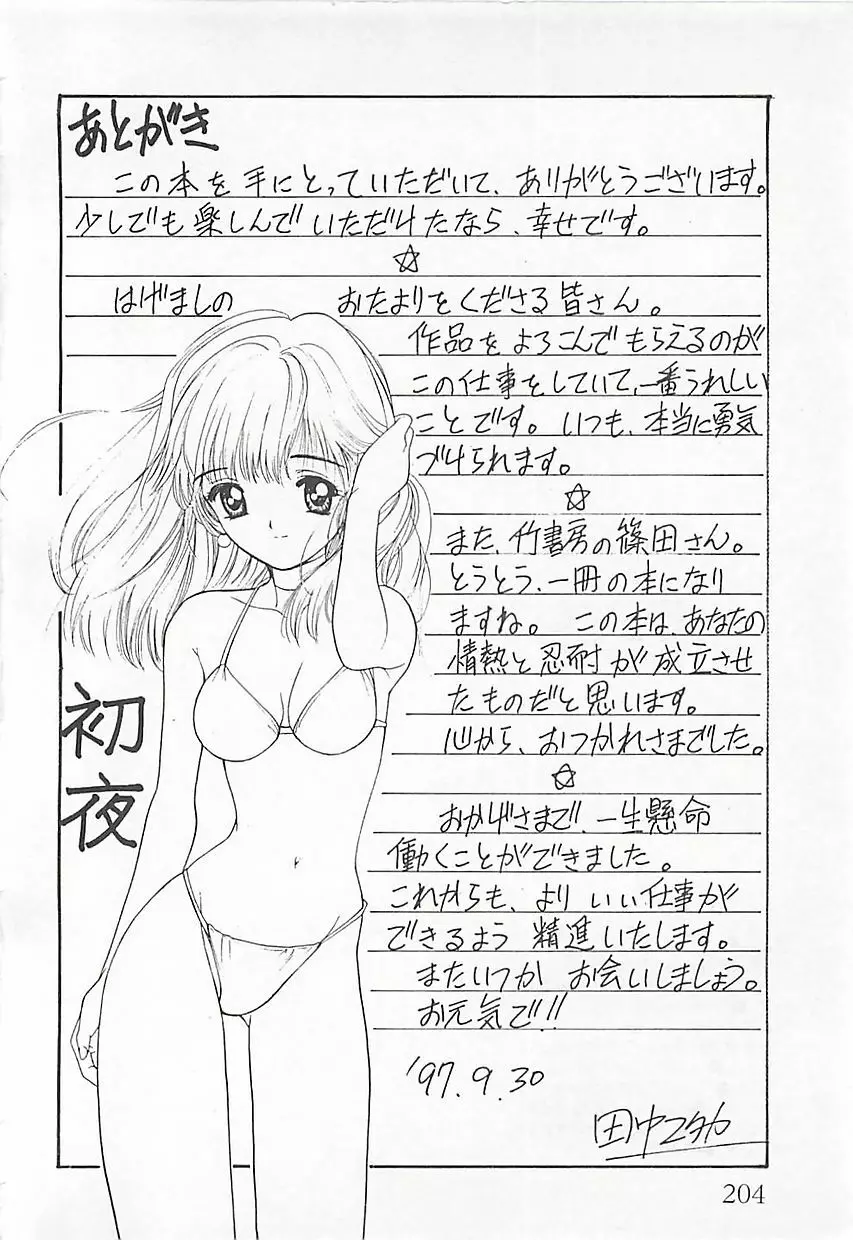 あとがき
この本を手にとっていただいて、ありがとうございます。
少しでも楽しんでいただけたなら、幸せです。
☆
はげましの おたよりをくださる皆さん。
作品をよろこんでもらえるのが
この仕事をしていて、一番うれしい
ことです。いつも、本当に勇気
づけられます。
☆
また、竹書房の篠田さん。
とうとう、一冊の本になり
ますね。この本は、あなたの
情熱と忍耐が成立させ
たものだと思います。
心から、おつかれさまでした。
☆
おかげさまで、一生懸命
働くことができました。
これからも、より いい仕事が
できるよう 精進いたします。
またいつか お会いしましょう。
お元気で!!
'97.9.30
田中ユタカ
初夜
204